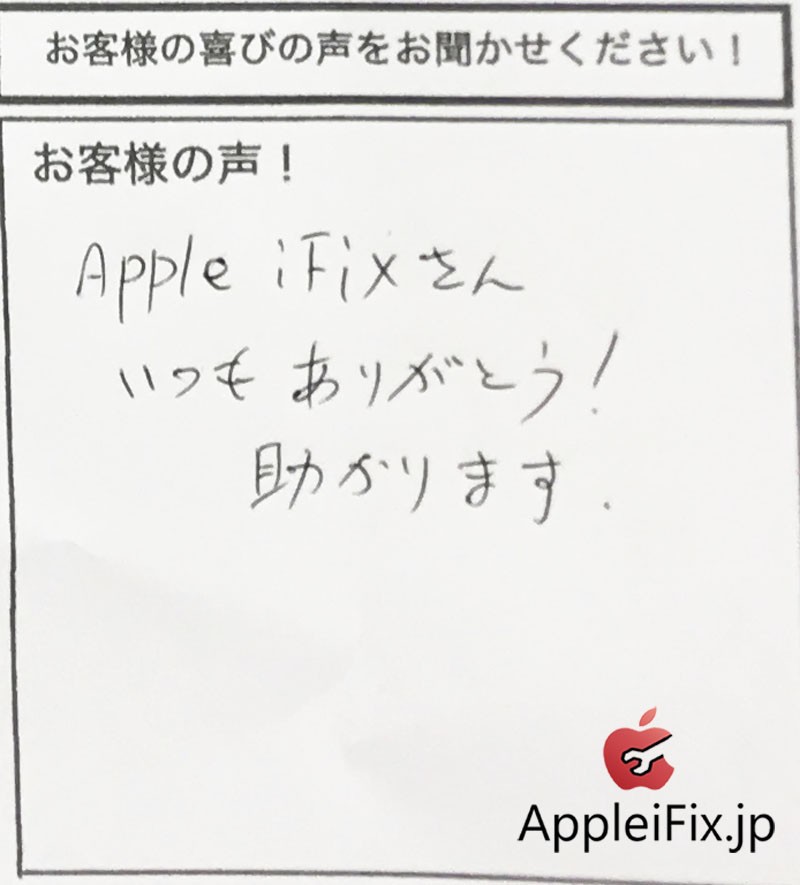 お客様の喜びの声をお聞かせください！
お客様の声！
Apple iFixさん
いつもありがとう！
助かります.
AppleiFix.jp